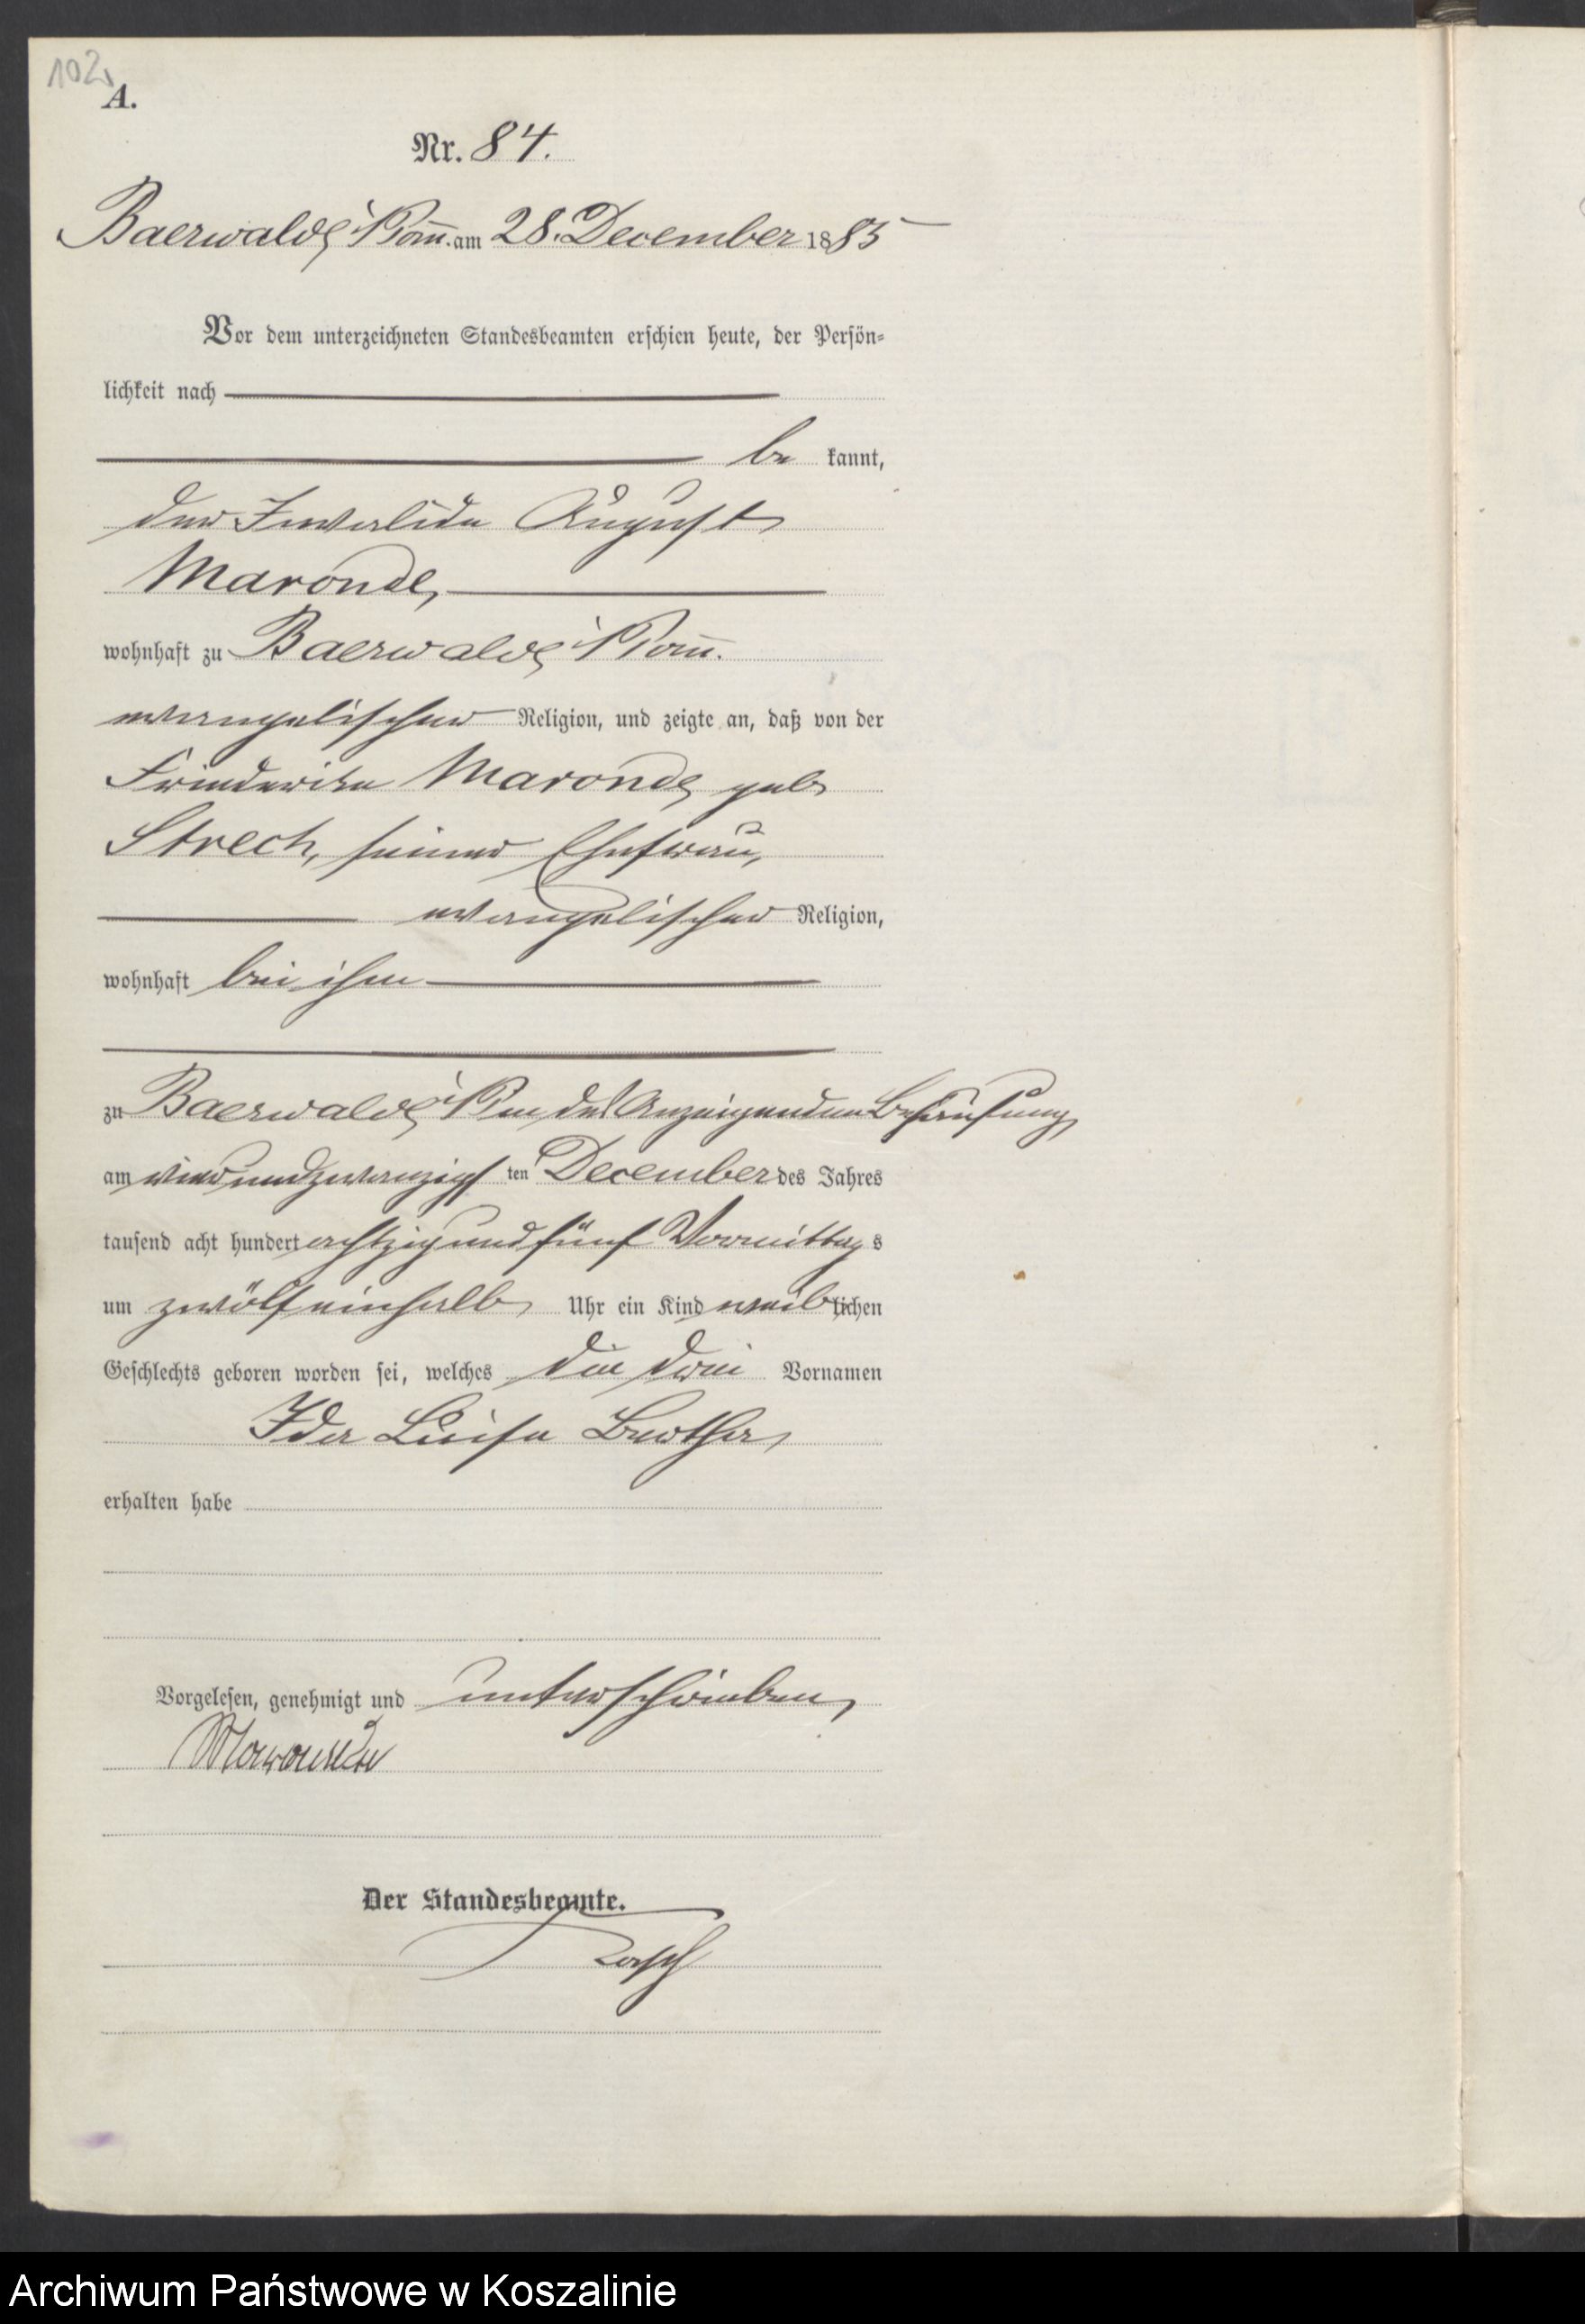 102
A.
Nr. 84.
Baerwalde i/Pom̄. am 28. December 1885
Vor dem unterzeichneten Standesbeamten erschien heute, der Persön-
lichkeit nach
be kannt,
der Invalide August
Maronde,
wohnhaft zu Baerwalde i/Pom̄.
evangelischer Religion, und zeigte an, daß von der
Friederike Maronde geb.
Strech, seiner Ehefrau,
evangelischer Religion,
wohnhaft bei ihm
zu Baerwalde i/P in des Anzeigenden Behausung
am vierundzwanzigsten December des Jahres
tausend acht hundert achtzig und fünf Vormittags
um zwölfeinhalb Uhr ein Kind weiblichen
Geschlechts geboren worden sei, welches die drei Vornamen
Ida Luise Bertha,
erhalten habe
Vorgelesen, genehmigt und unterschrieben,
Maronde
Der Standesbeamte.
Archiwum Państwowe w Koszalinie